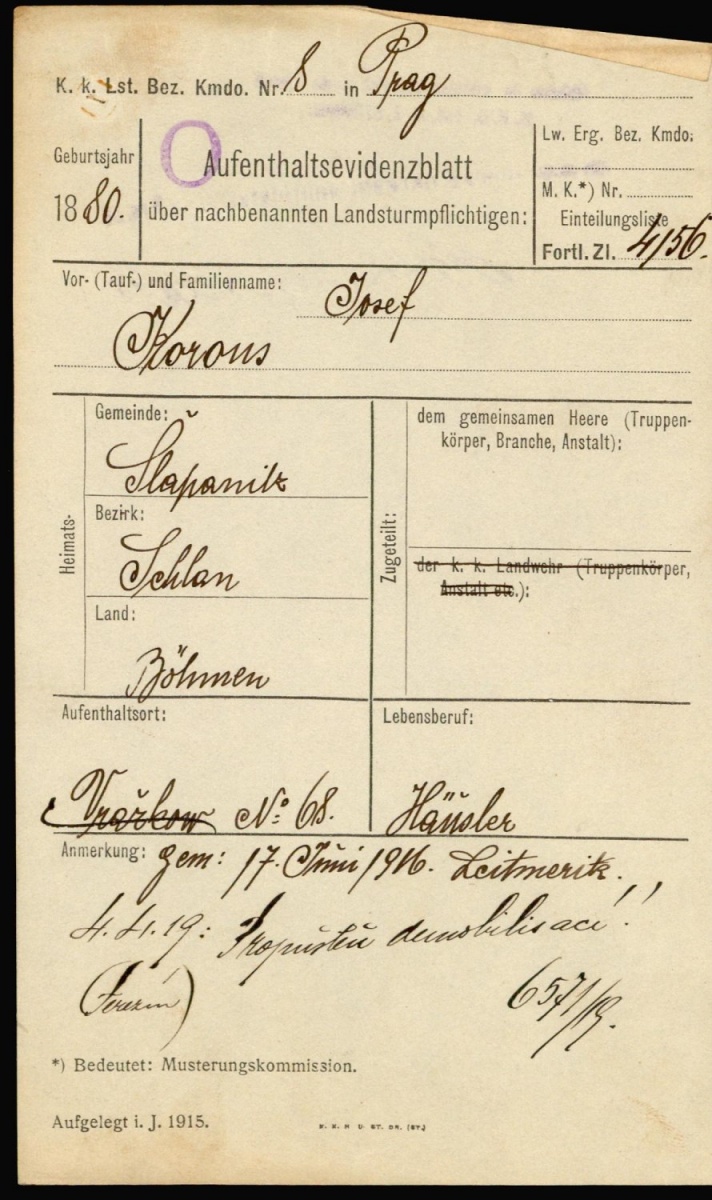 K. k. Lst. Bez. Kmdo. Nr. 8 in Prag
Geburtsjahr
1880.
O
Aufenthaltsevidenzblatt
über nachbenannten Landsturmpflichtigen:
Lw. Erg. Bez. Kmdo:
M. K.*) Nr.
Einteilungsliste
Fortl. Zl. 4156.
Vor- (Tauf-) und Familienname: Josef
Korous
Heimats-
Gemeinde:
Šlapanitz
Bezirk:
Schlan
Land:
Böhmen
Zugeteilt:
dem gemeinsamen Heere (Truppen-
körper, Branche, Anstalt):
der k. k. Landwehr (Truppenkörper,
Anstalt etc.):
Aufenthaltsort:
Vražkow No: 68.
Lebensberuf:
Häusler
Anmerkung: gem: 17. Juni 1916. Leitmeritz.
4.4.19: Propuštěn demobilisací!
(Terezín)
6571/19.
*) Bedeutet: Musterungskommission.
Aufgelegt i. J. 1915.
K. K. H. U. ST. DR. (ST.)